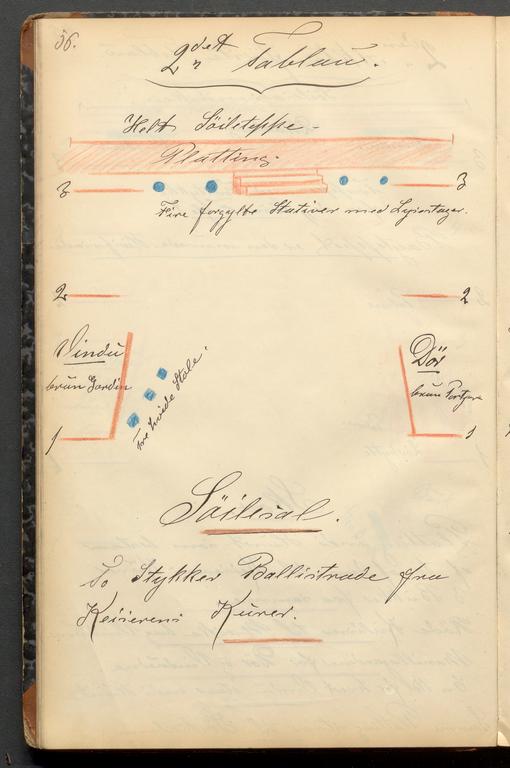 36.
2det Tablau.
Helt Söileteppe.
Platting.
3 3
Fire forgylte Stativer med Lysestager.
2 2
Vindu Dör
brun Gardin brun Portiere
Tre hvide Stole.
1 1
Söilesal.
To Stykker Ballustrade fra
Keiserens Kurer.